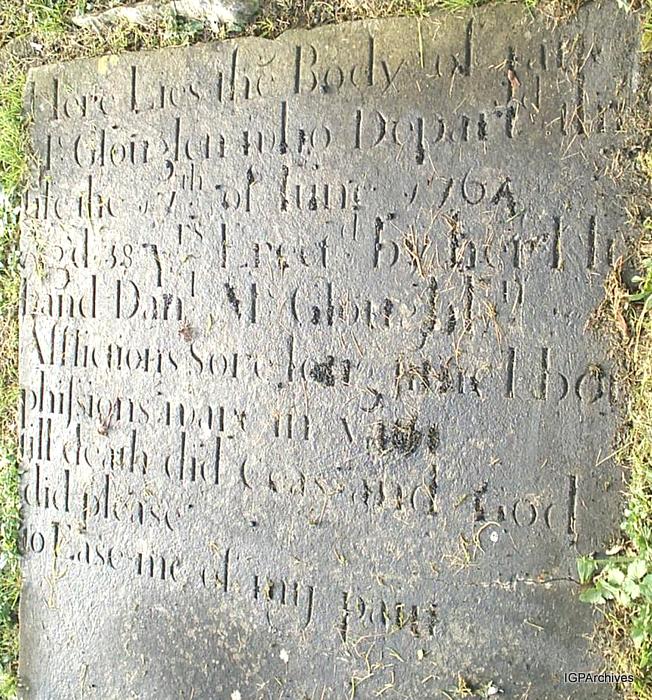 Here Lies the Body of Jane
Mc Glouglen who Depart'd this
life the 17th of June 1764
aged 38 yrs Erect'd by her Hus
band Danl Mc Glough
Afflictions Sore long time I bor
phisions ware in vain
till death did Ceas and God
did please
to Ease me of my pain
IGPArchives